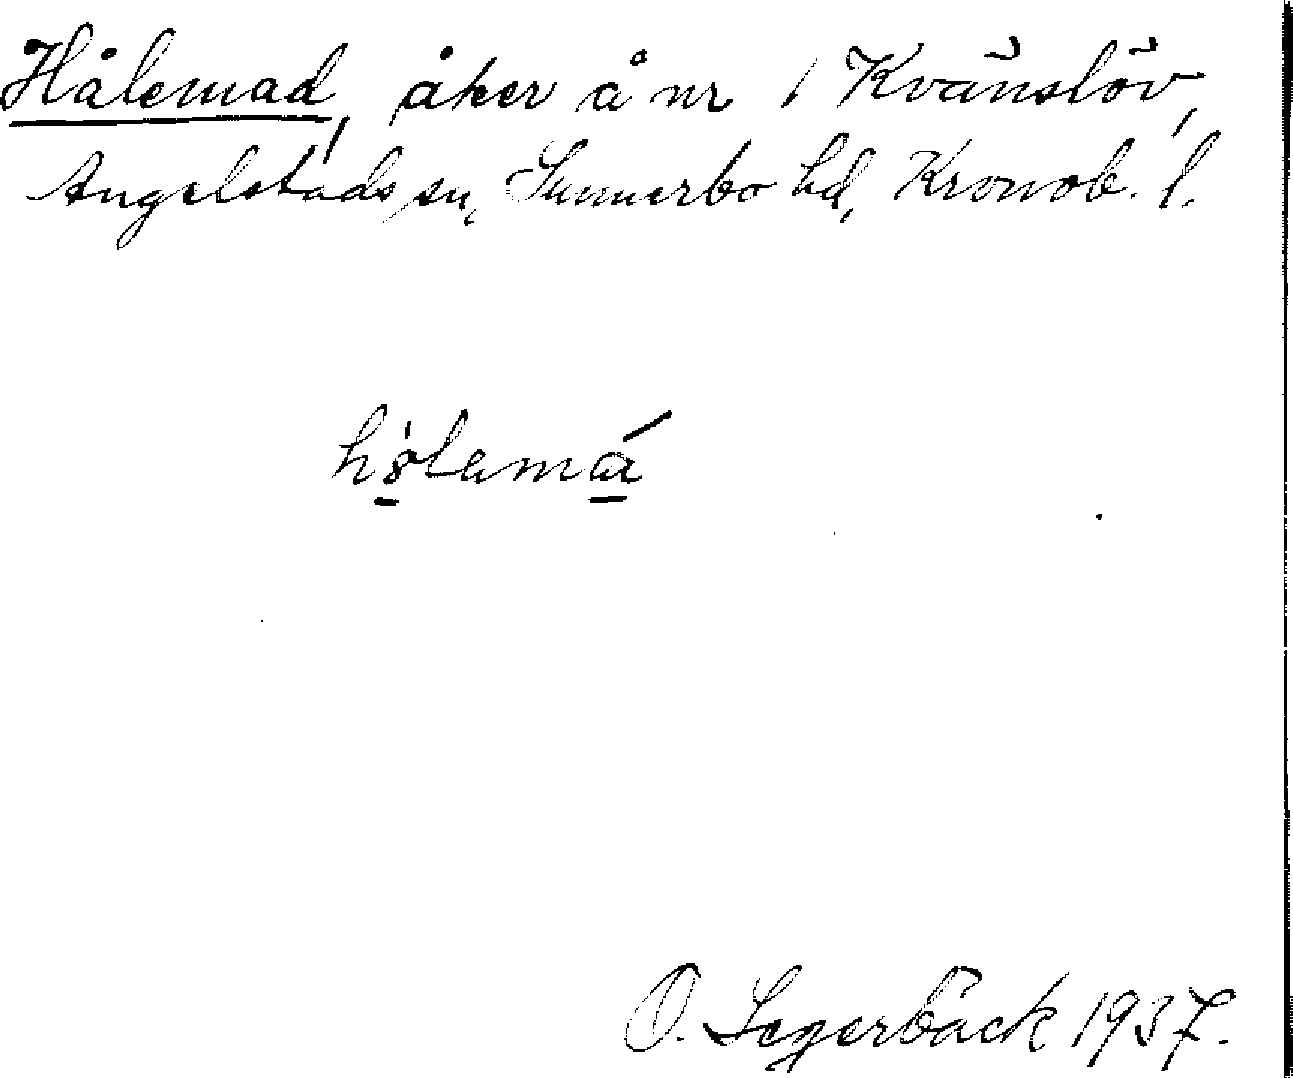 Hålemad, åker å nr 1 Kvänslöv,
Angelstads sn, Sunnerbo hd, Kronob. l.
O. Segerbäck 1937.